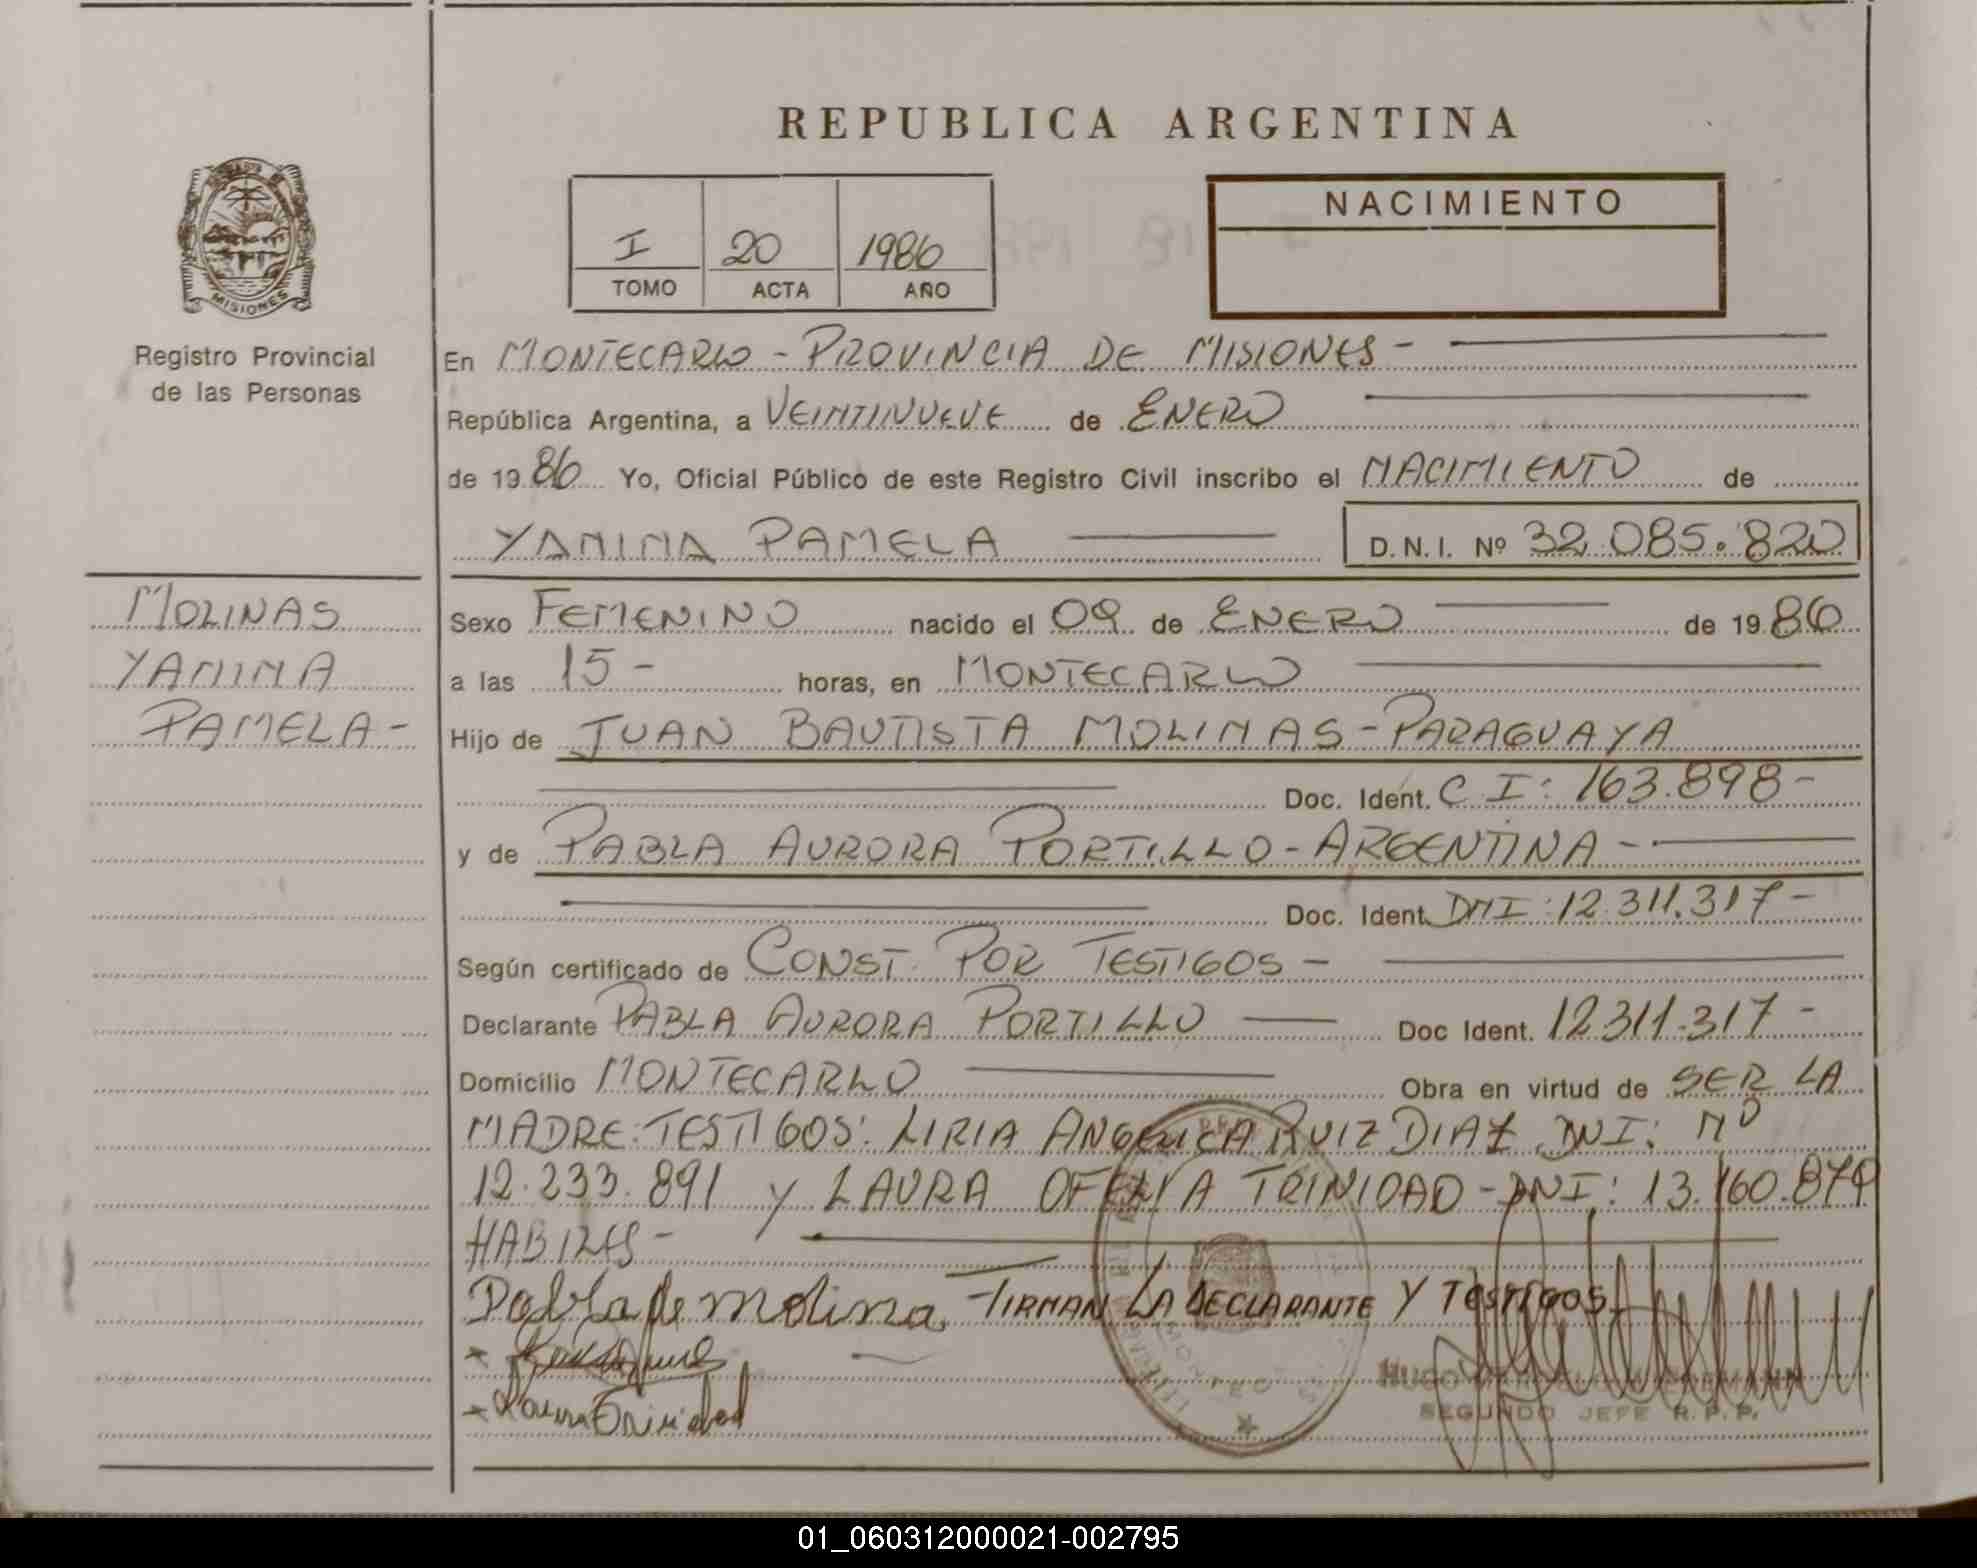 REPUBLICA ARGENTINA
I 20 1986
TOMO ACTA AÑO
NACIMIENTO
MISIONES
Registro Provincial
de las Personas
En MONTECARLO - PROVINCIA DE MISIONES -
República Argentina, a VEINTINUEVE de ENERO
de 1986 Yo, Oficial Público de este Registro Civil inscribo el NACIMIENTO de
YANINA PAMELA D.N.I. Nº 32.085.820
MOLINAS
YANINA
PAMELA -
Sexo FEMENINO nacido el 09 de ENERO de 1986
a las 15 - horas, en MONTECARLO
Hijo de JUAN BAUTISTA MOLINAS - PARAGUAYA
Doc. Ident. C I: 163.898 -
y de PABLA AURORA PORTILLO - ARGENTINA -
Doc. Ident. DNI: 12.311.317 -
Según certificado de CONST. POR TESTIGOS -
Declarante PABLA AURORA PORTILLO Doc Ident. 12311.317 -
Domicilio MONTECARLO Obra en virtud de SER LA
MADRE: TESTIGOS: LIRIA ANGELICA RUIZ DIAZ DNI: Nº
12.233.891 y LAURA OFELIA TRINIDAD - DNI: 13.160.879
HABILES -
Pabla de molina FIRMAN LA DECLARANTE Y TESTIGOS
Laura Trinidad
HUGO
SEGUNDO JEFE R.P.P.
01_060312000021-002795